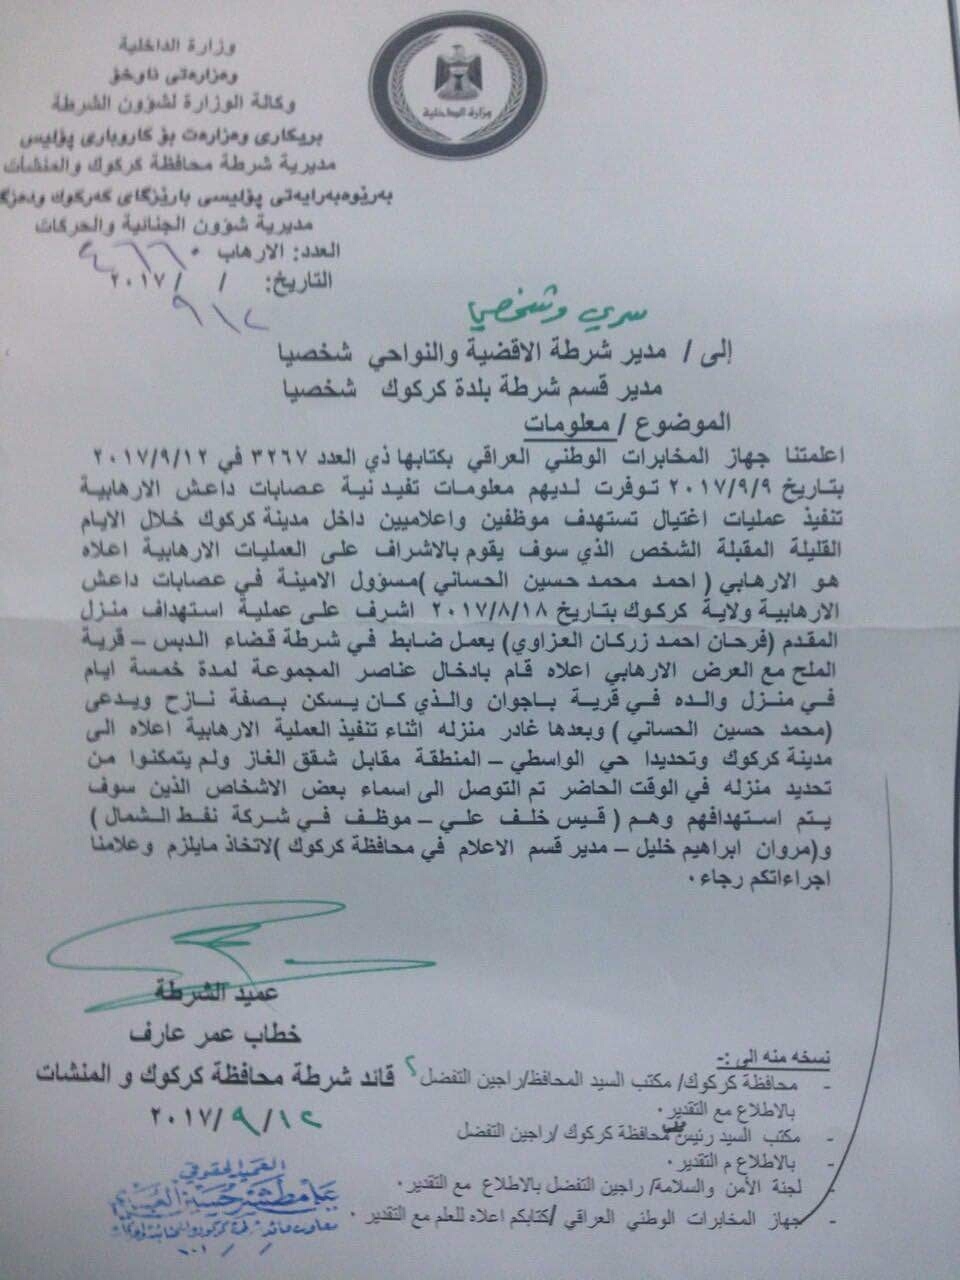 وزارة الداخلية
وزارة الداخلية
وەزارەتی ناوخۆ
وكالة الوزارة لشؤون الشرطة
بریکاری وەزارەت بۆ کاروباری پۆلیس
مديرية شرطة محافظة كركوك والمنشات
بەرێوەبەرایەتی پۆلیسی بارێزگای کەرکوك
مديرية شؤون الجنائية والحركات
العدد: الارهاب ٤٦٦٠
التاريخ: / / ٢٠١٧
٩/١٢
سري وشخصيا
إلى / مدير شرطة الاقضية والنواحي شخصيا
مدير قسم شرطة بلدة كركوك شخصيا
الموضوع / معلومات
اعلمتنا جهاز المخابرات الوطني العراقي بكتابها ذي العدد ٣٢٦٧ في ٢٠١٧/٩/١٢
بتاريخ ٢٠١٧/٩/٩ توفرت لديهم معلومات تفيد نية عصابات داعش الارهابية
تنفيذ عمليات اغتيال تستهدف موظفين واعلاميين داخل مدينة كركوك خلال الايام
القليلة المقبلة الشخص الذي سوف يقوم بالاشراف على العمليات الارهابية اعلاه
هو الارهابي ( احمد محمد حسين الحساني )مسؤول الامنية في عصابات داعش
الارهابية ولاية كركوك بتاريخ ٢٠١٧/٨/١٨ اشرف على عملية استهداف منزل
المقدم (فرحان احمد زركان العزاوي) يعمل ضابط في شرطة قضاء الدبس – قرية
الملح مع العرض الارهابي اعلاه قام بادخال عناصر المجموعة لمدة خمسة ايام
في منزل والده في قرية باجوان والذي كان يسكن بصفة نازح ويدعى
(محمد حسين الحساني ) وبعدها غادر منزله اثناء تنفيذ العملية الارهابية اعلاه الى
مدينة كركوك وتحديدا حي الواسطي – المنطقة مقابل شقق الغاز ولم يتمكنوا من
تحديد منزله في الوقت الحاضر تم التوصل الى اسماء بعض الاشخاص الذين سوف
يتم استهدافهم وهم ( قيس خلف علي – موظف في شركة نفط الشمال )
و(مروان ابراهيم خليل – مدير قسم الاعلام في محافظة كركوك )لاتخاذ مايلزم وعلامنا
اجراءاتكم رجاء ٠
عميد الشرطة
خطاب عمر عارف
قائد شرطة محافظة كركوك و المنشات
٢٠١٧/٩/١٢
نسخه منه الى :-
- محافظة كركوك/ مكتب السيد المحافظ/راجين التفضل
بالاطلاع مع التقدير٠
- مكتب السيد رئيس محافظة كركوك /راجين التفضل
- بالاطلاع م التقدير٠
- لجنة الأمن والسلامة/ راجين التفضل بالاطلاع مع التقدير٠
- جهاز المخابرات الوطني العراقي /كتابكم اعلاه للعلم مع التقدير ٠
العميد الحقوقي